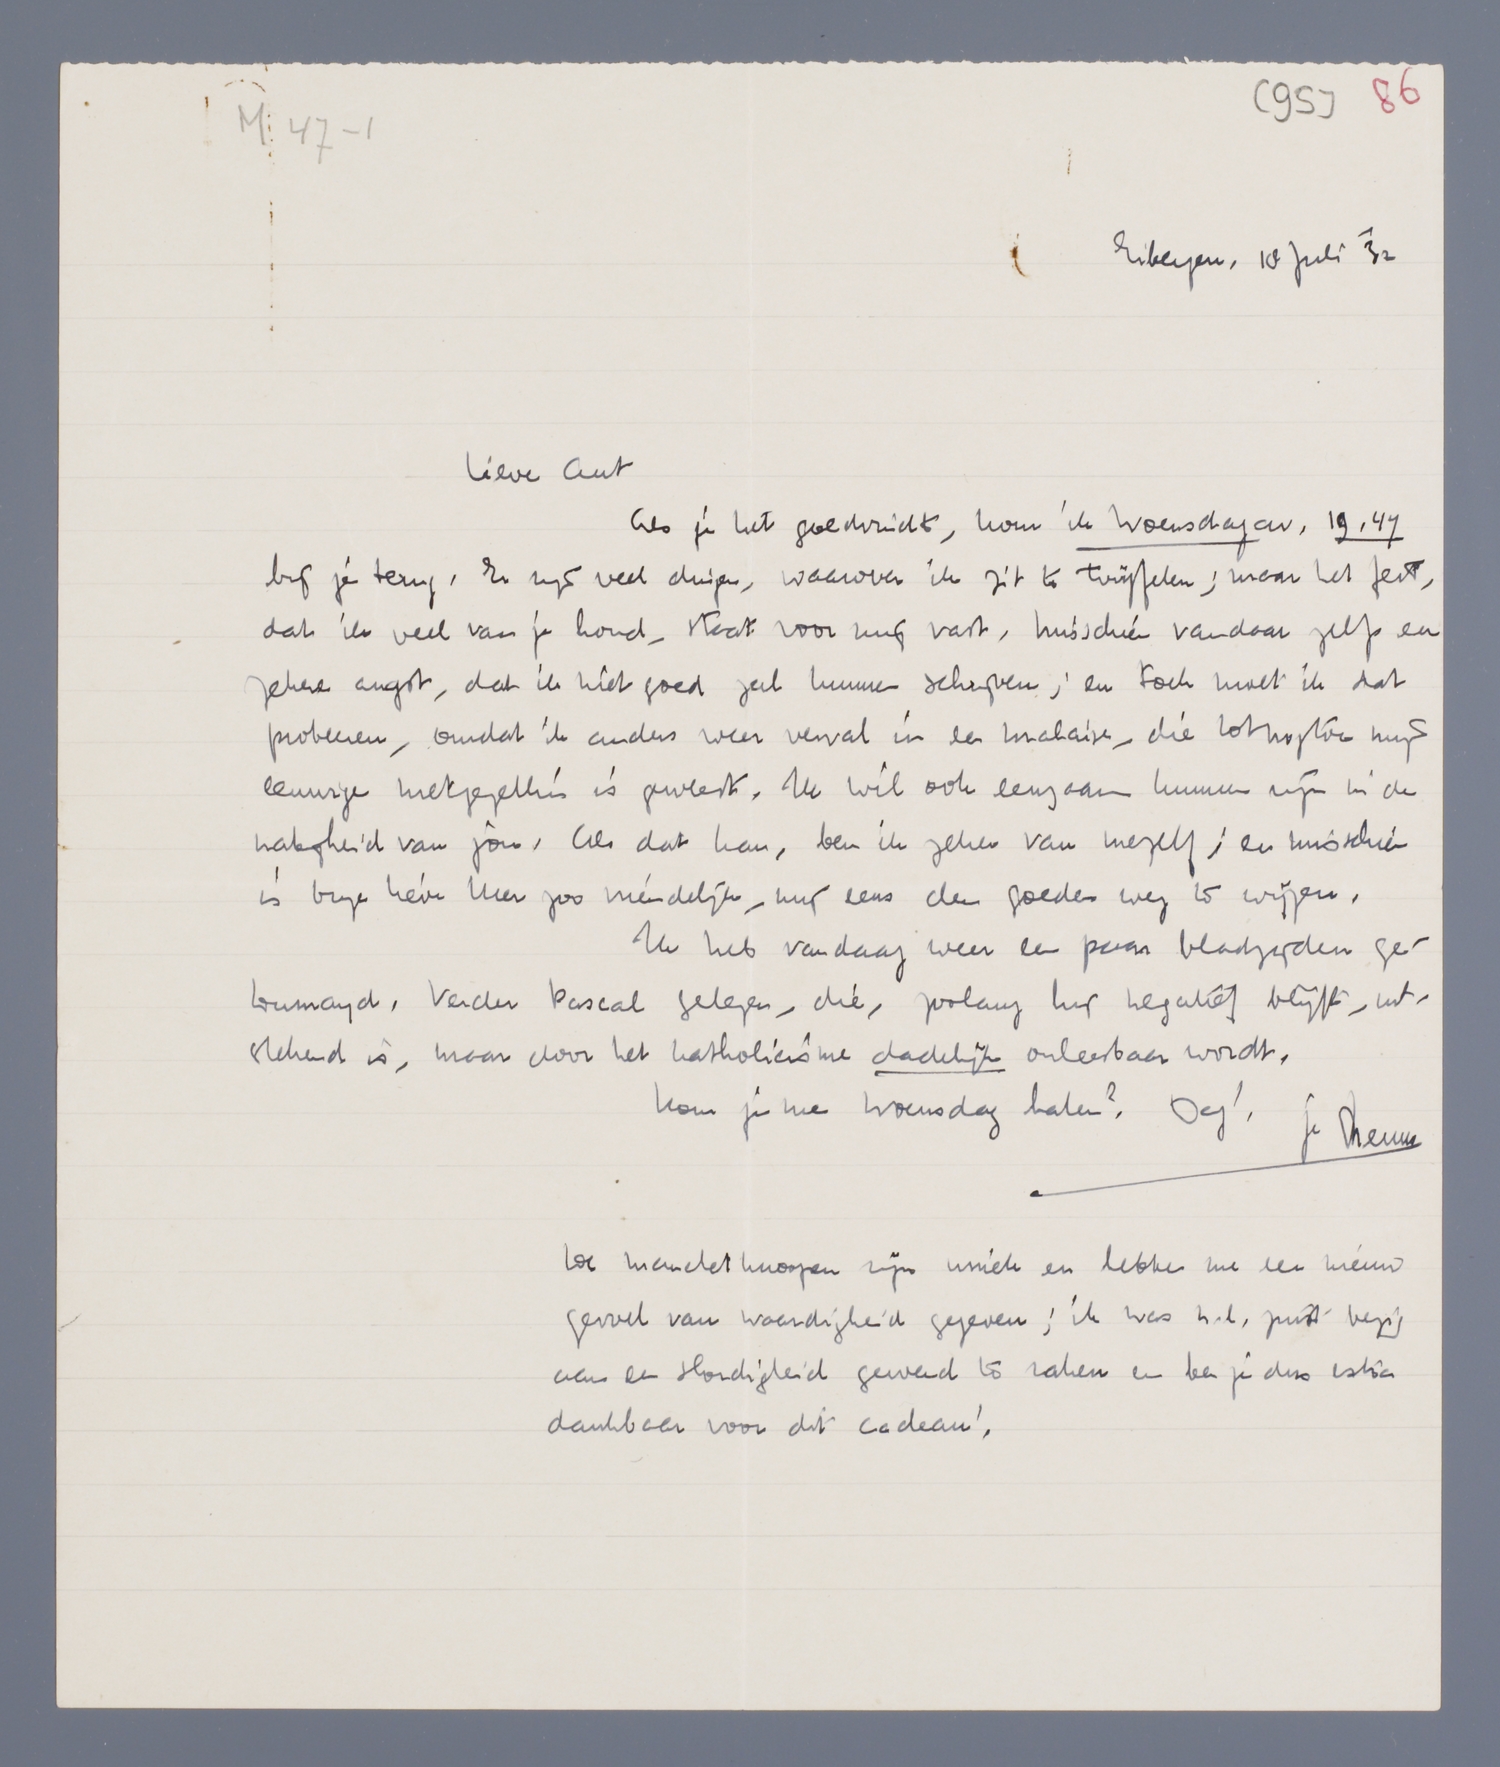 M 47-1
(95) 86
Eibergen, 18 Juli '32
Lieve Ant
Als je het goedvindt, kom ik Woensdagav. 19.47
bij je terug. Er zijn veel dingen, waarover ik zit te twijfelen; maar het feit,
dat ik veel van je houd, staat voor mij vast. Misschien vandaar zelfs een
zekere angst, dat ik niet goed zal kunnen schrijven; en toch moet ik dat
probeeren, omdat ik anders weer verval in een malaise, die tot nogtoe mijn
eeuwige metgezellin is geweest. Ik wil ook eenzaam kunnen zijn in de
nabijheid van jou. Als dat kan, ben ik zeker van mezelf; en misschien
is onze lieve Heer zoo vriendelijk, mij eens den goeden weg te wijzen.
Ik heb vandaag weer een paar bladzijden ge-
boumand. Verder Pascal gelezen, die, zoolang hij negatief blijft, uit-
stekend is, maar door het katholicisme dadelijk onleesbaar wordt.
Kom je me Woensdag halen? Dag! je Menno
De manchetknoopen zijn uniek en hebben me een nieuw
gevoel van waardigheid gegeven; ik was n.l. juist bezig
aan een slordigheid gewend te raken en ben je dus extra
dankbaar voor dit cadeau!